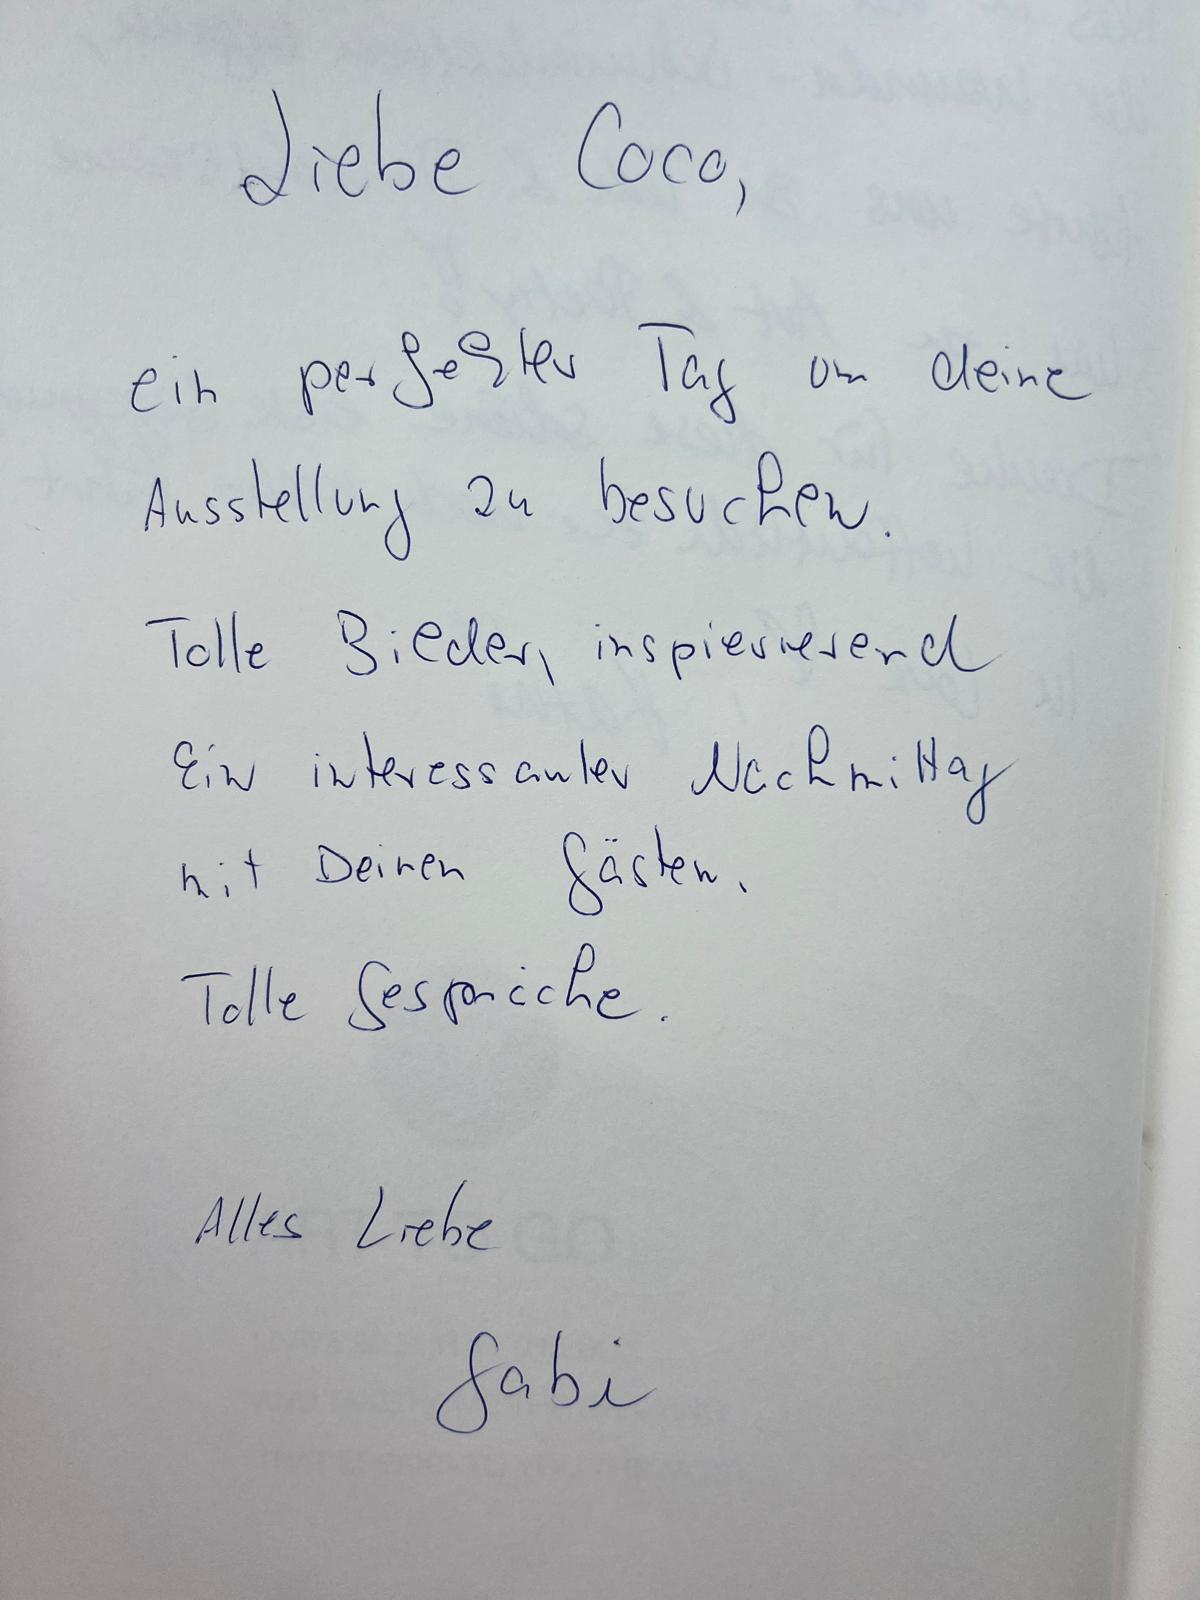 Liebe Coco,
ein perfekter Tag um deine
Ausstellung zu besuchen.
Tolle Bieder, inspierierend
Ein interessanter Nachmittag
mit Deinen Gästen.
Tolle Gespräche.
Alles Liebe
Gabi